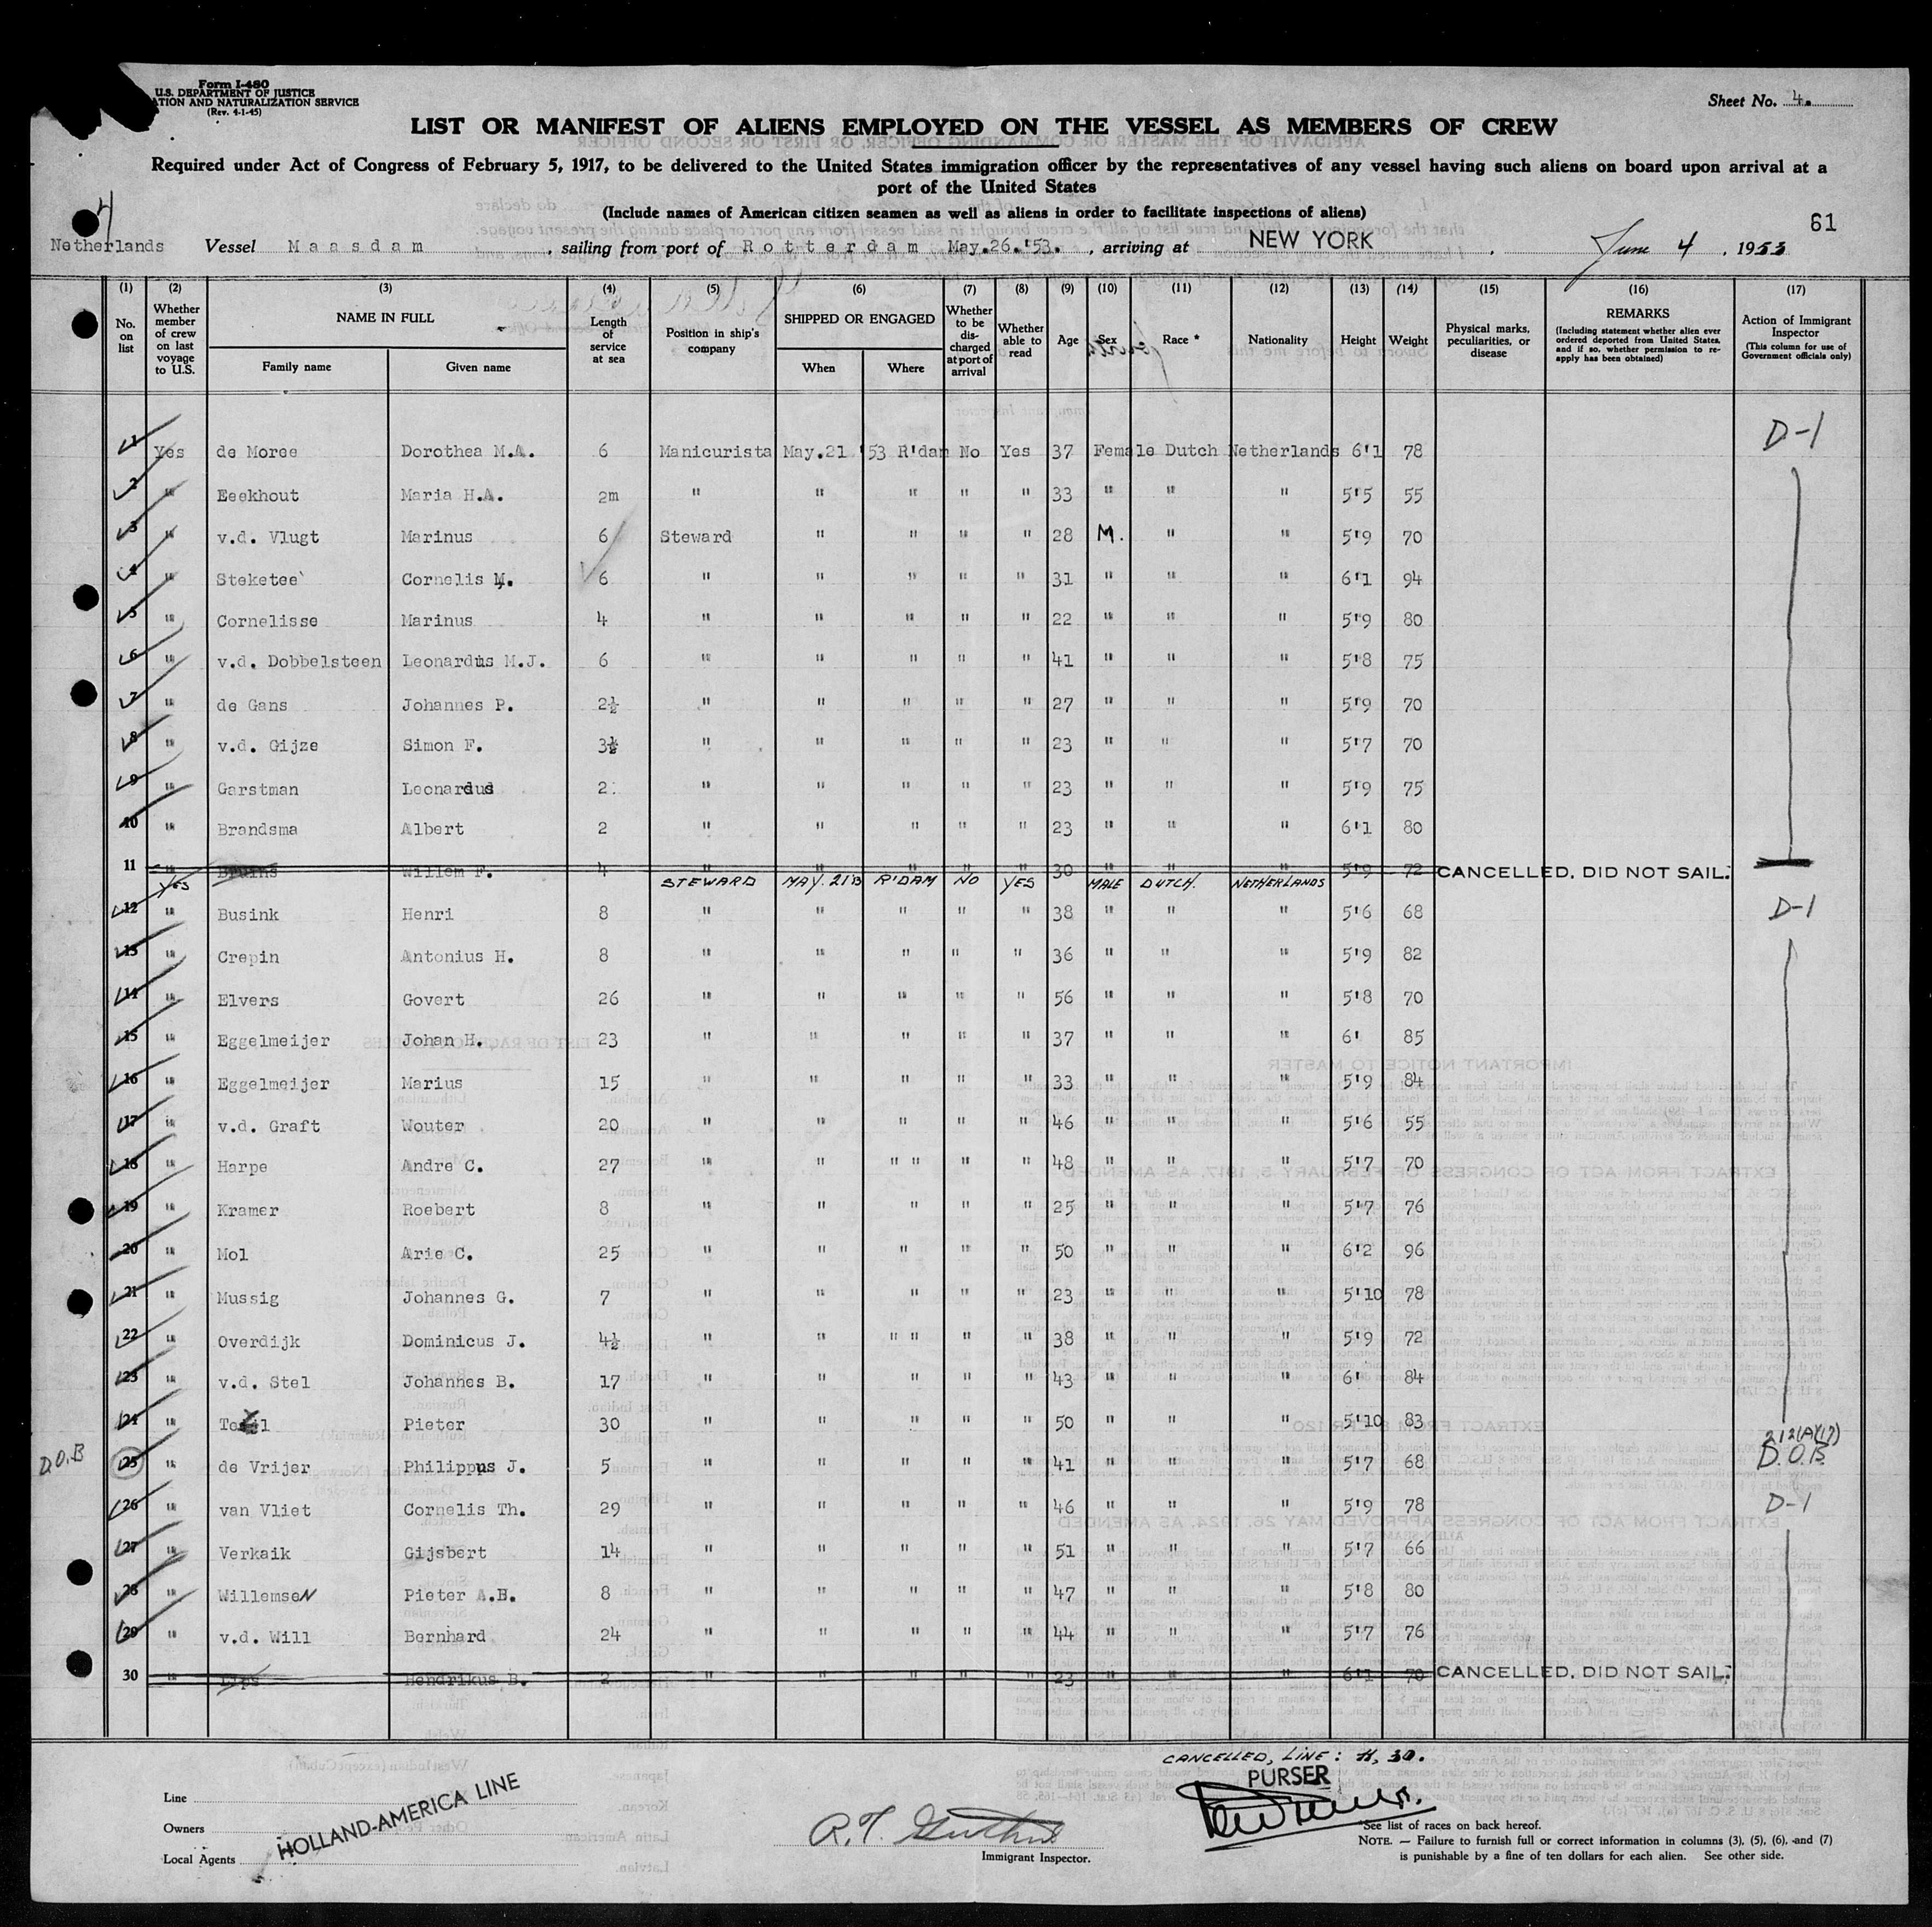 Form I-480
U.S. DEPARTMENT OF JUSTICE
ATION AND NATURALIZATION SERVICE
(Rev. 4-1-45)
Sheet No. 4.
LIST OR MANIFEST OF ALIENS EMPLOYED ON THE VESSEL AS MEMBERS OF CREW
Required under Act of Congress of February 5, 1917, to be delivered to the United States immigration officer by the representatives of any vessel having such aliens on board upon arrival at a
port of the United States
(Include names of American citizen seamen as well as aliens in order to facilitate inspections of aliens)
4
61
Netherlands Vessel Maasdam, sailing from port of Rotterdam May.26.'53., arriving at NEW YORK, June 4, 1953
(1) (2) (3) (4) (5) (6) (7) (8) (9) (10) (11) (12) (13) (14) (15) (16) (17)
No. on list Whether member of crew on last voyage to U.S. NAME IN FULL Family name Given name Length of service at sea Position in ship's company SHIPPED OR ENGAGED When Where Whether to be discharged at port of arrival Whether able to read Age Sex Race * Nationality Height Weight Physical marks, peculiarities, or disease REMARKS (Including statement whether alien ever ordered deported from United States, and if so, whether permission to reapply has been obtained) Action of Immigrant Inspector (This column for use of Government officials only)
1 Yes de Moree Dorothea M.A. 6 Manicurista May.21 '53 R'dam No Yes 37 Female Dutch Netherlands 6'1 78 D-1
2 " Eeekhout Maria H.A. 2m " " " " " 33 " " " 5'5 55
3 " v.d. Vlugt Marinus 6 Steward " " " " 28 M. " " 5'9 70
4 " Steketee Cornelis M. 6 " " " " " 31 " " " 6'1 94
5 " Cornelisse Marinus 4 " " " " " 22 " " " 5'9 80
6 " v.d. Dobbelsteen Leonardus M.J. 6 " " " " " 41 " " " 5'8 75
7 " de Gans Johannes P. 2½ " " " " " 27 " " " 5'9 70
8 " v.d. Gijze Simon F. 3½ " " " " " 23 " " " 5'7 70
9 " Garstman Leonardus 2 " " " " " 23 " " " 5'9 75
10 " Brandsma Albert 2 " " " " " 23 " " " 6'1 80
11 " Bruins Willem F. 4 " " " " " 30 " " " 5'9 72 CANCELLED, DID NOT SAIL.
YES STEWARD MAY. 21'53 R'DAM NO YES MALE DUTCH. NETHERLANDS
12 " Busink Henri 8 " " " " " 38 " " " 5'6 68 D-1
13 " Crepin Antonius H. 8 " " " " " 36 " " " 5'9 82
14 " Elvers Govert 26 " " " " " 56 " " " 5'8 70
15 " Eggelmeijer Johan H. 23 " " " " " 37 " " " 6' 85
16 " Eggelmeijer Marius 15 " " " " " 33 " " " 5'9 84
17 " v.d. Graft Wouter 20 " " " " " 46 " " " 5'6 55
18 " Harpe Andre C. 27 " " " " " " 48 " " " 5'7 70
19 " Kramer Roebert 8 " " " " " 25 " " " 5'7 76
20 " Mol Arie C. 25 " " " " " 50 " " " 6'2 96
21 " Mussig Johannes G. 7 " " " " " 23 " " " 5'10 78
22 " Overdijk Dominicus J. 4½ " " " " " " 38 " " " 5'9 72
23 " v.d. Stel Johannes B. 17 " " " " " 43 " " " 6' 84
24 " Pieter 30 " " " " " 50 " " " 5'10 83
D.O.B 25 " de Vrijer Philippus J. 5 " " " " " 41 " " " 5'7 68 212(A)(17) D.O.B
26 " van Vliet Cornelis Th. 29 " " " " " 46 " " " 5'9 78 D-1
27 " Verkaik Gijsbert 14 " " " " " 51 " " " 5'7 66
28 " Willemsen Pieter A.H. 8 " " " " " 47 " " " 5'8 80
29 " v.d. Will Bernhard 24 " " " " " 44 " " " 5'7 76
30 " Lips Hendrikus B. 2 " " " " " 23 " " " 6'1 70 CANCELLED, DID NOT SAIL.
CANCELLED, LINE: 11, 30.
PURSER
Line
Owners
Local Agents
HOLLAND-AMERICA LINE
Immigrant Inspector.
*See list of races on back hereof.
NOTE. — Failure to furnish full or correct information in columns (3), (5), (6), and (7)
is punishable by a fine of ten dollars for each alien. See other side.